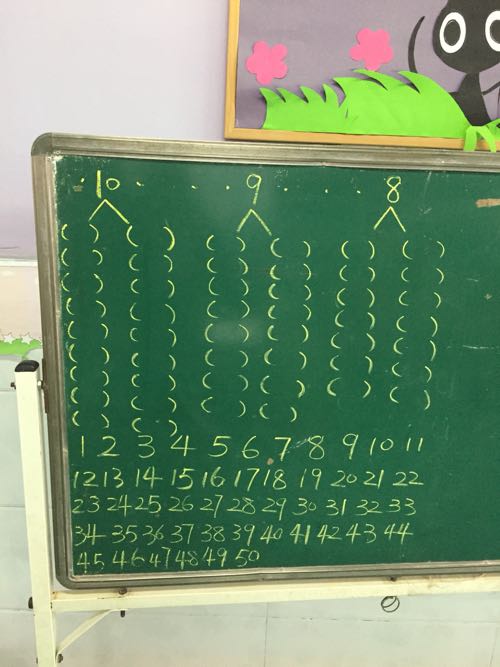 10 9 8
( ) ( ) ( ) ( ) ( ) ( )
( ) ( ) ( ) ( ) ( ) ( )
( ) ( ) ( ) ( ) ( ) ( )
( ) ( ) ( ) ( ) ( ) ( )
( ) ( ) ( ) ( ) ( ) ( )
( ) ( ) ( ) ( ) ( ) ( )
( ) ( ) ( ) ( ) ( ) ( )
( ) ( ) ( ) ( )
( ) ( )
1 2 3 4 5 6 7 8 9 10 11
12 13 14 15 16 17 18 19 20 21 22
23 24 25 26 27 28 29 30 31 32 33
34 35 36 37 38 39 40 41 42 43 44
45 46 47 48 49 50